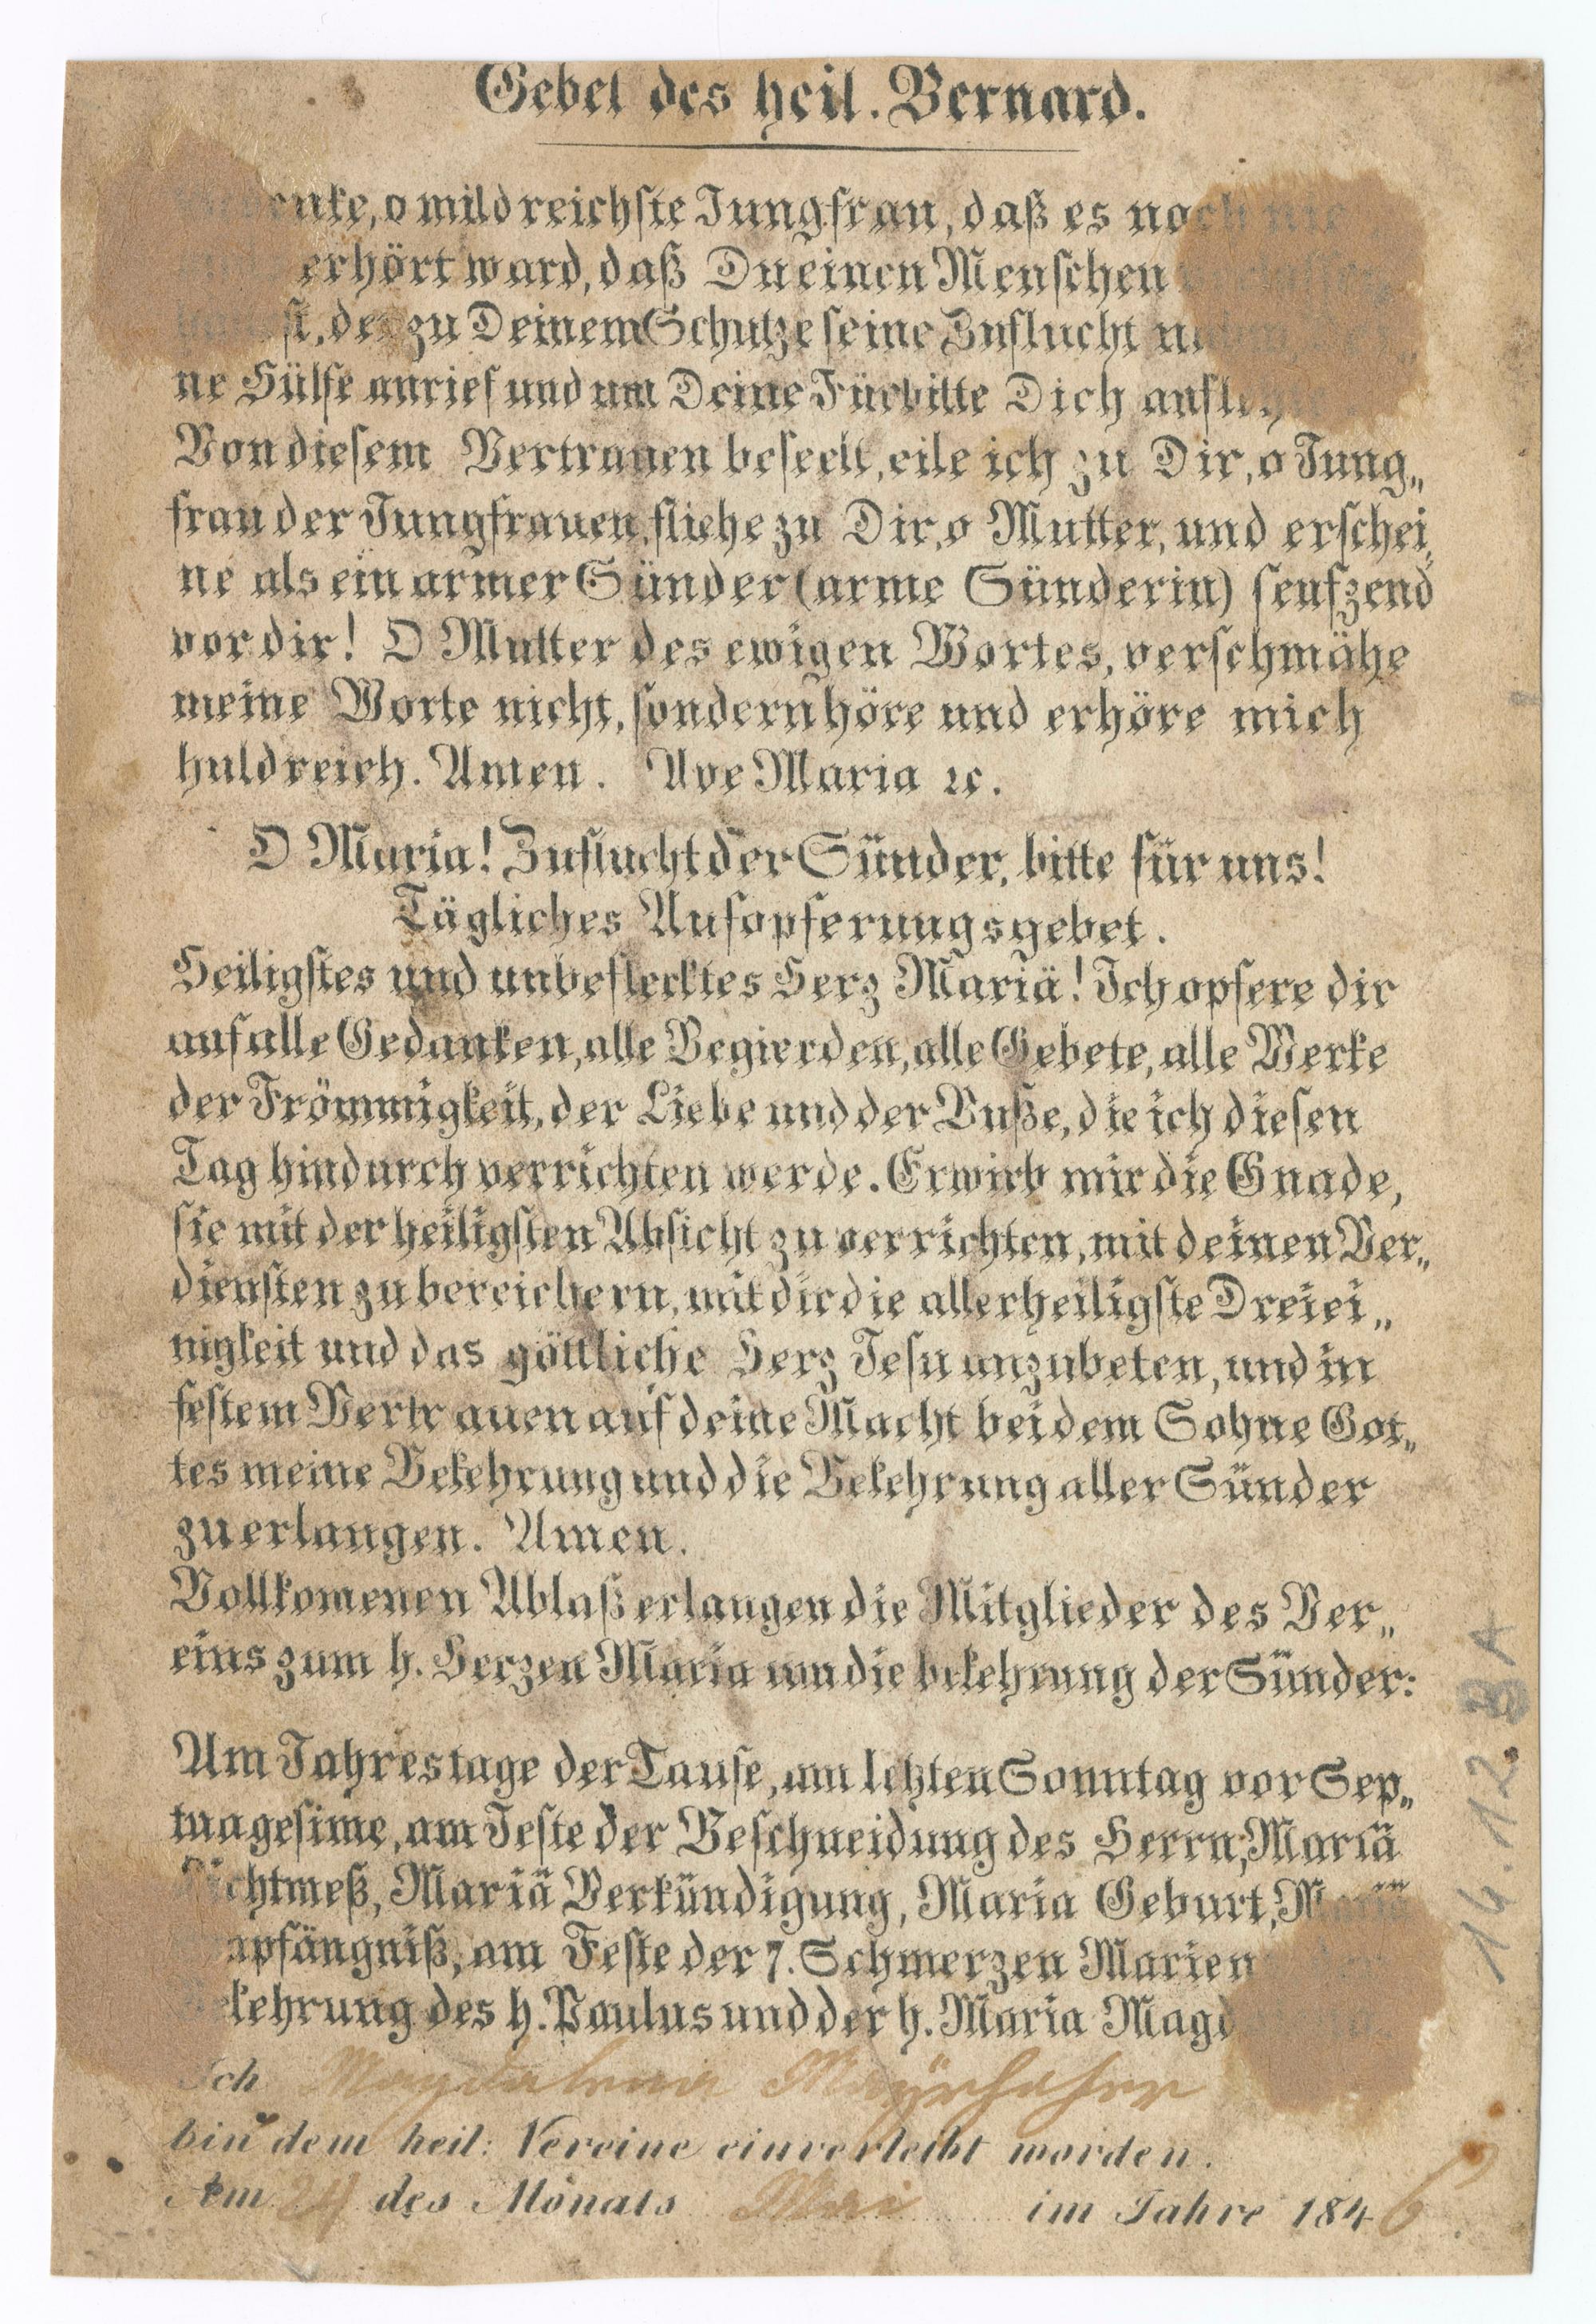 Gebet des heil. Bernard.
Gedenke, o mildreichste Jungfrau, daß es noch nie
erhört ward, daß Du einen Menschen
der zu Deinem Schutze seine Zuflucht
ne Hülfe anrief und um Deine Fürbitte Dich anfleh
Von diesem Vertrauen beseelt, eile ich zu Dir, o Jung„
frau der Jungfrauen, fliehe zu Dir, o Mutter, und erschei„
ne als ein armer Sünder (arme Sünderin) seufzend
vor dir! O Mutter des ewigen Wortes, verschmähe
meine Worte nicht, sondern höre und erhöre mich
huldreich. Amen. Ave Maria ꝛc.
O Maria! Zuflucht der Sünder, bitte für uns!
Tägliches Aufopferungsgebet.
Heiligstes und unbeflecktes Herz Mariä! Ich opfere dir
auf alle Gedanken, alle Begierden, alle Gebete, alle Werke
der Frömmigkeit, der Liebe und der Buße, die ich diesen
Tag hindurch verrichten werde. Erwirb mir die Gnade,
sie mit der heiligsten Absicht zu verrichten, mit deinen Ver„
diensten zu bereichern, mit dir die allerheiligste Dreiei„
nigkeit und das göttliche Herz Jesu anzubeten, und in
festem Vertrauen auf deine Macht bei dem Sohne Got„
tes meine Bekehrung und die Bekehrung aller Sünder
zu erlangen. Amen.
Vollkomenen Ablaß erlangen die Mitglieder des Ver„
eins zum h. Herzen Maria um die bekehrung der Sünder:
Am Jahrestage der Taufe, am letzten Sonntag vor Sep„
tuagesime, am Feste der Beschneidung des Herrn; Mariä
Lichtmeß, Mariä Verkündigung, Maria Geburt, Mariä
mpfängniß, am Feste der 7. Schmerzen Marien
Bekehrung des h. Paulus und der h. Maria Magd
Ich Magdalena Mayrhofer
bin dem heil: Vereine einverleibt worden.
Am 24 des Monats Mai im Jahre 1846.
14.12.8A